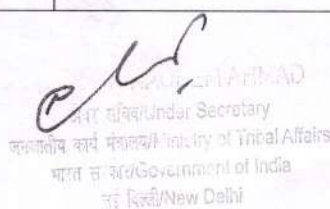 AHMAD
सचिव/Under Secretary
जनजातीय कार्य मंत्रालय/Ministry of Tribal Affairs
भारत सरकार/Government of India
नई दिल्ली/New Delhi